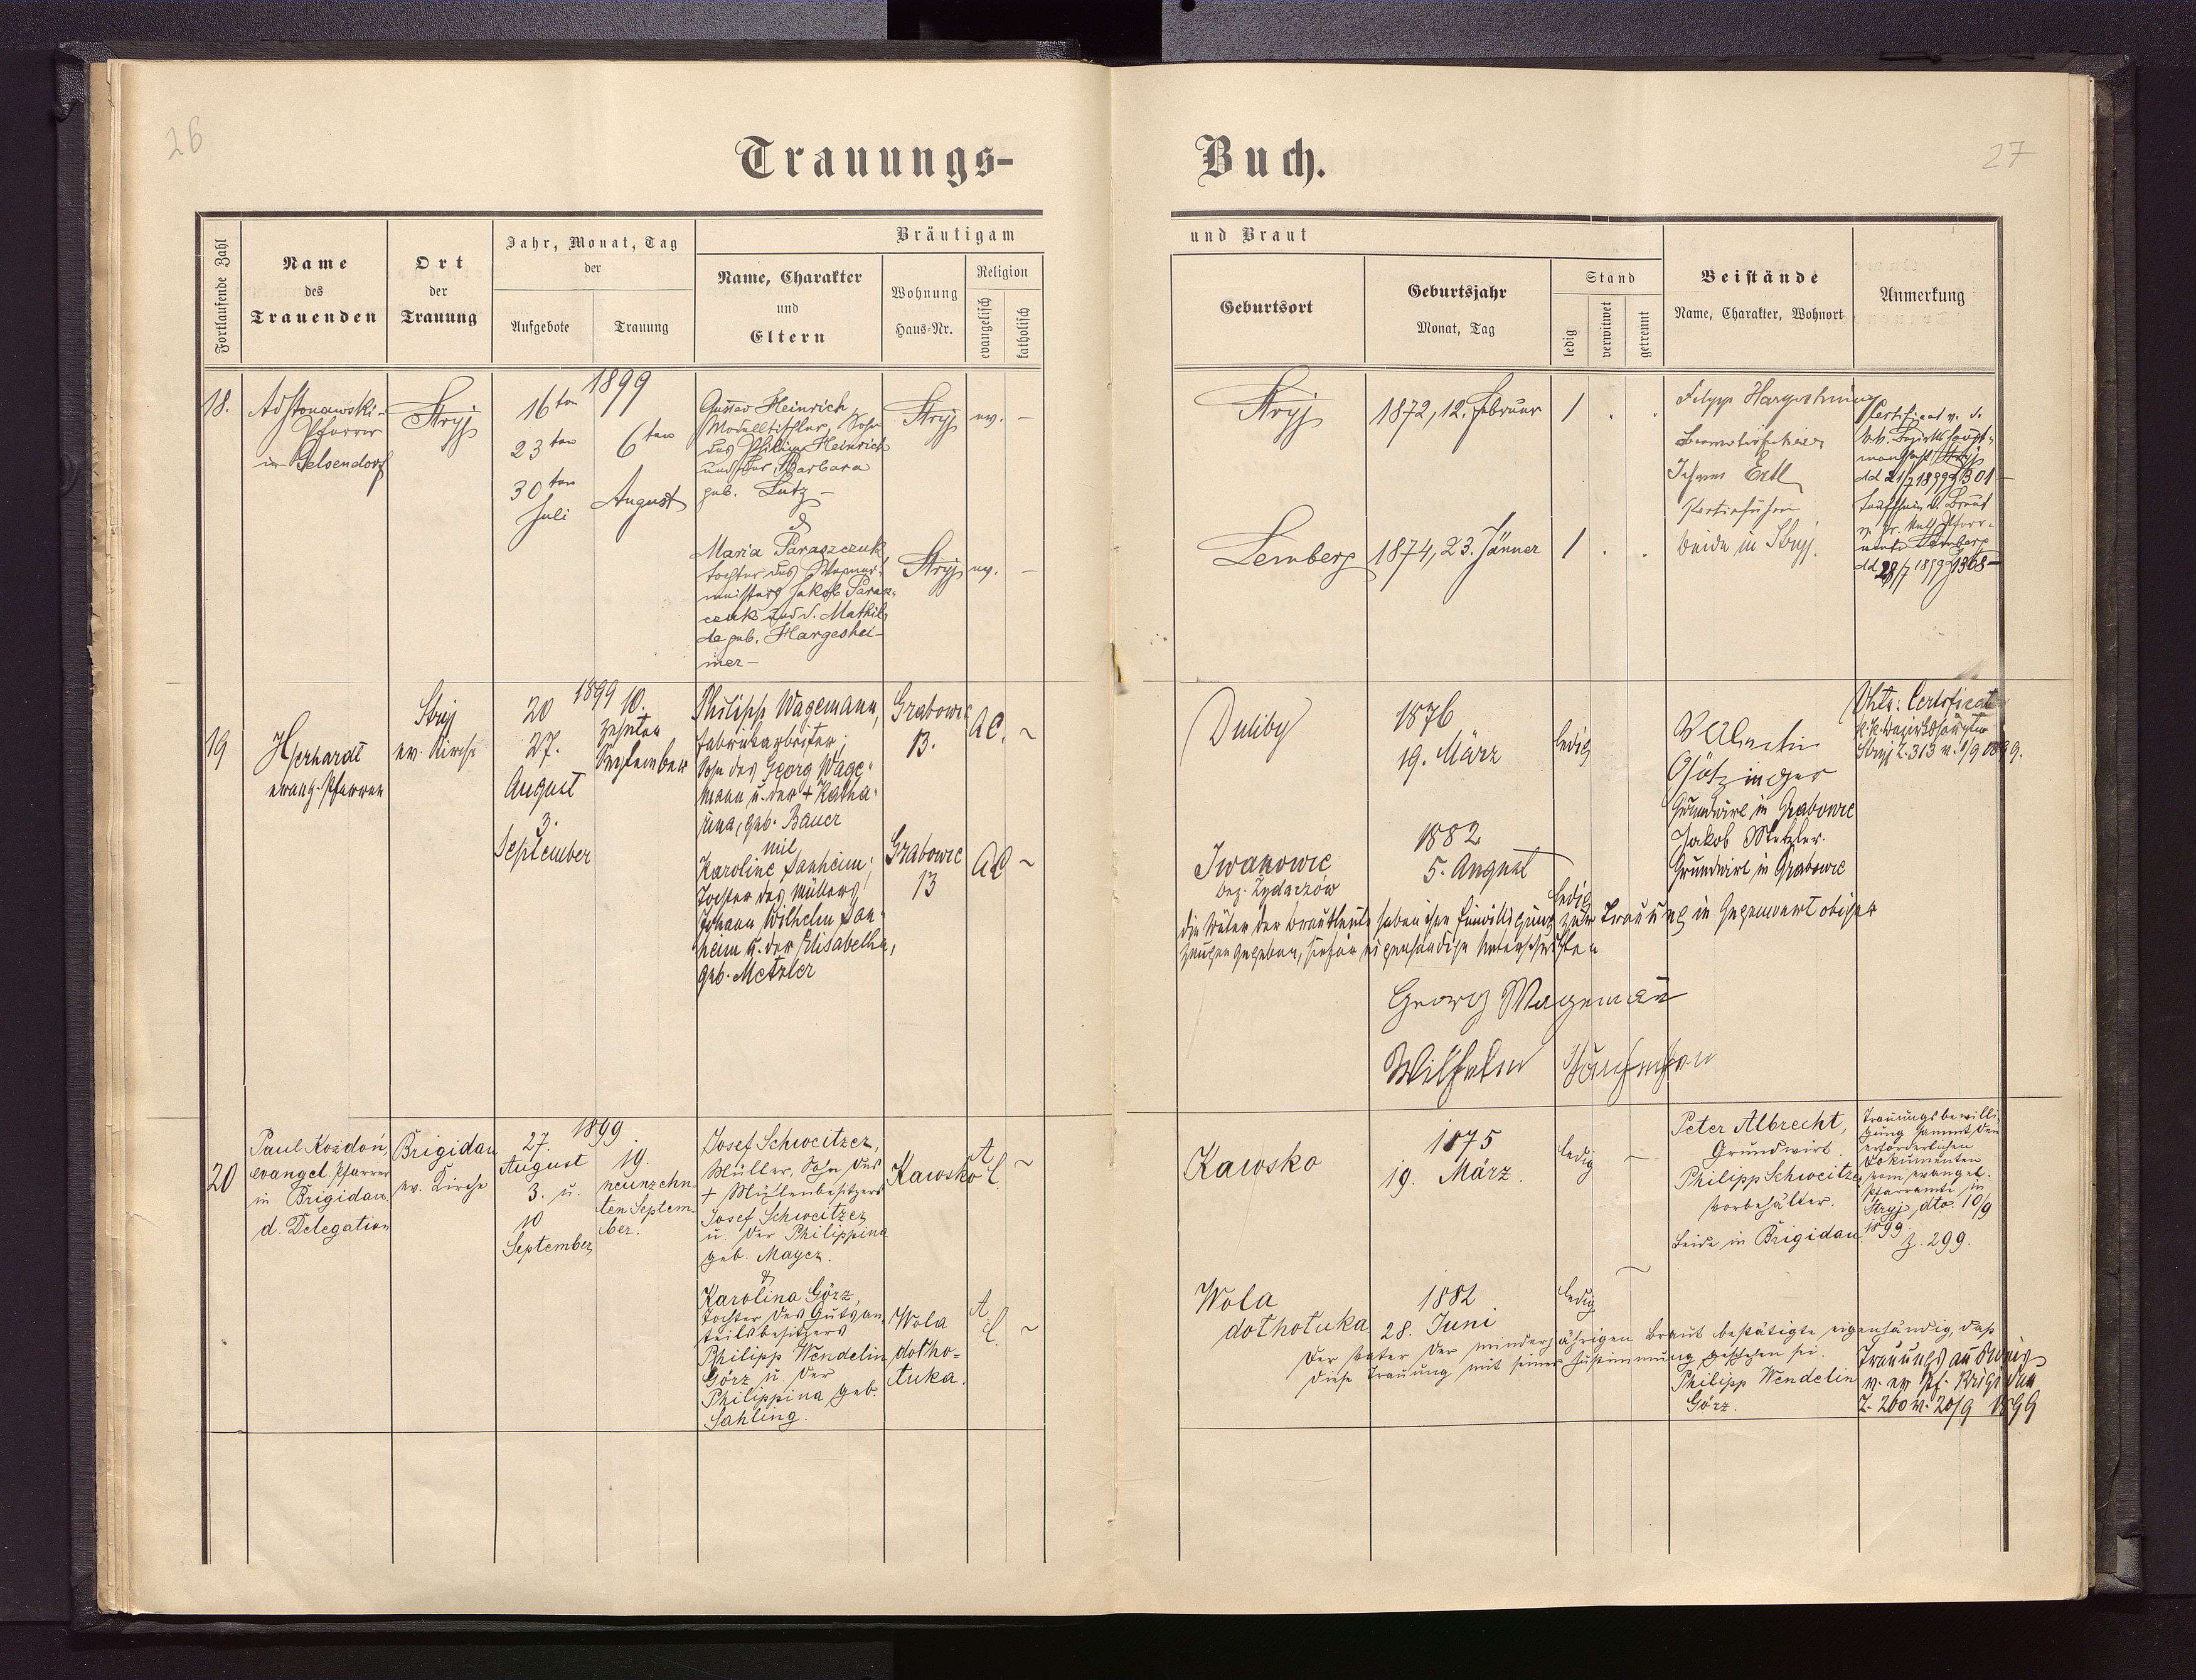 26
Trauungs-
Buch.
27
Fortlaufende Zahl
Name
des
Trauenden
Ort
der
Trauung
Jahr, Monat, Tag
der
Aufgebote
Trauung
Bräutigam
Name, Charakter
und
Eltern
Wohnung
Haus-Nr.
Religion
evangelisch
katholisch
und Braut
Geburtsort
Geburtsjahr
Monat, Tag
Stand
ledig
verwitwet
getrennt
Beistände
Name, Charakter, Wohnort
Anmerkung
18.
Pfarrer
in Gelsendorf
Stryj
1899
16ten
23ten
30ten
Juli
6ten
August
Gustav Heinrich,
Modelltischler, Sohn
des Philipp Heinrich
und der Barbara
geb. Lutz –
&
Maria Paraszczuk
Tochter des
meisters Jakob Parasz-
czuk und d. Mathil-
de geb. Hargeshei-
mer –
Stryj
ev. –
Stryj
ev. –
Stryj
1872, 12. Februar
1 . .
Lemberg
1874, 23. Jänner
1 . .
Johann Ertl
beide in Stryj.
Certificat v. d.
k.k. Bezirkshaupt-
mannschaft Stryj
dd 21/7 1899 Z 301 –
Taufschein d. Braut
Lemberg
dd 28/7 1899 Z 1368 –
19
evang. Pfarrer
Stryj
ev. Kirche
1899
20
27.
August
3.
September
10.
zehnten
September
Philipp Wagemann,
Fabriksarbeiter,
Sohn des Georg Wage-
mann u. der + Katha-
rina, geb. Bauer
mit
Karoline Sanheim,
Tochter des Müllers
Johann Wilhelm San-
heim u. der Elisabetha,
geb. Metzler
Grabowce
13.
AC. ~
Grabowce
13
AC ~
Duliby
1876
19. März
ledig
Iwanowce
bez. Żydaczów
1882
5. August
ledig
Valentin
Götzinger
Grundwirt in Grabowce
Jakob Metzler
Grundwirt in Grabowce
Certificat
Stryj Z. 313 v. 1/9 1899.
die Väter der Brautleute haben ihre Einwilligung zur Trauung in Gegenwart obiger
Zeugen gegeben, hiefür eigenhändige Unterschriften
Georg Wagemann
Wilhelm
20
Paul Kozdoń,
evangel. Pfarrer
in Brigidau
d. Delegation
Brigidau
ev. Kirche
1899
27.
August
3. u.
10
September
19.
neunzehn-
ten Septem-
ber.
Josef Schweitzer,
Müller, Sohn des
+ Mühlenbesitzers
Josef Schweitzer
u. der Philippina
geb. Mayer.
&
Karolina Görz,
Tochter des Gutsan-
teilsbesitzers
Philipp Wendelin
Görz u. der
Philippina geb.
Sahling.
Kawsko
A.C. ~
Wola
dotho-
tuka.
A.C. ~
Kawsko
1875
19. März.
ledig
Wola
dothotuka
1882
28. Juni
ledig
Peter Albrecht,
Grundwirt.
Philipp Schweitzer
Vorbehälter.
beide in Brigidau.
Trauungsbewilli-
gung sammt den
erforderlichen
Dokumenten
vom evangel.
Pfarramte in
Stryj, dto. 10/9
1899. Z. 299.
Der Vater der minderjährigen Braut bestätigte eigenhändig, daß
diese Trauung mit seiner Zustimmung geschehen sei.
Philipp Wendelin
Görz.
Trauungsausweis
v. ev. Pf. Brigidau
Z. 200 v. 20/9 1899